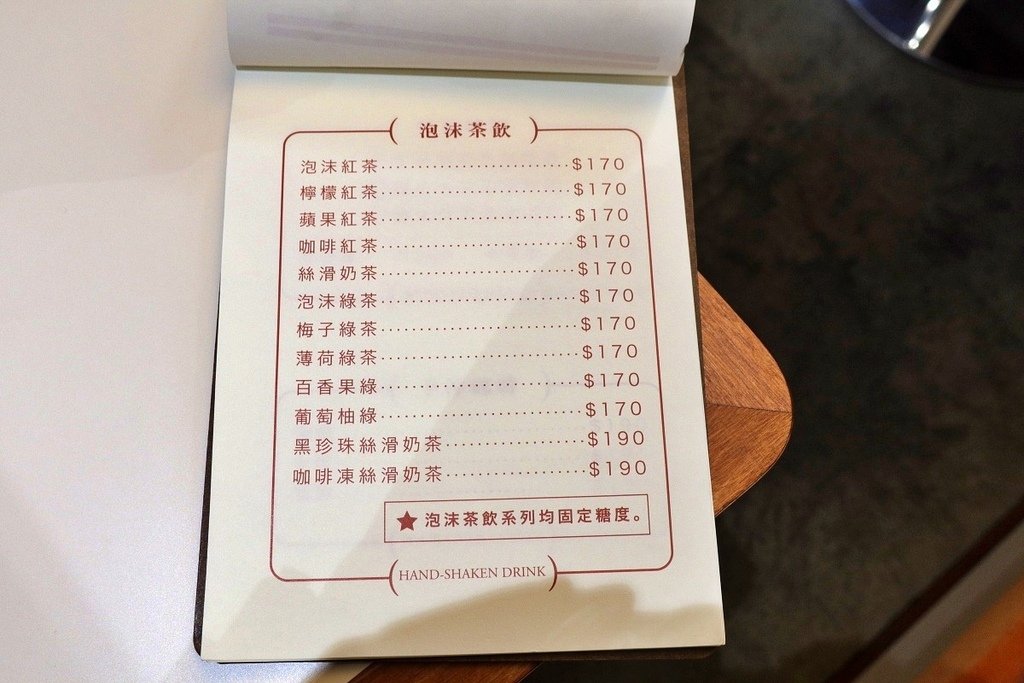 泡沫茶飲
泡沫紅茶 $170
檸檬紅茶 $170
蘋果紅茶 $170
咖啡紅茶 $170
絲滑奶茶 $170
泡沫綠茶 $170
梅子綠茶 $170
薄荷綠茶 $170
百香果綠 $170
葡萄柚綠 $170
黑珍珠絲滑奶茶 $190
咖啡凍絲滑奶茶 $190
★ 泡沫茶飲系列均固定糖度。
HAND-SHAKEN DRINK